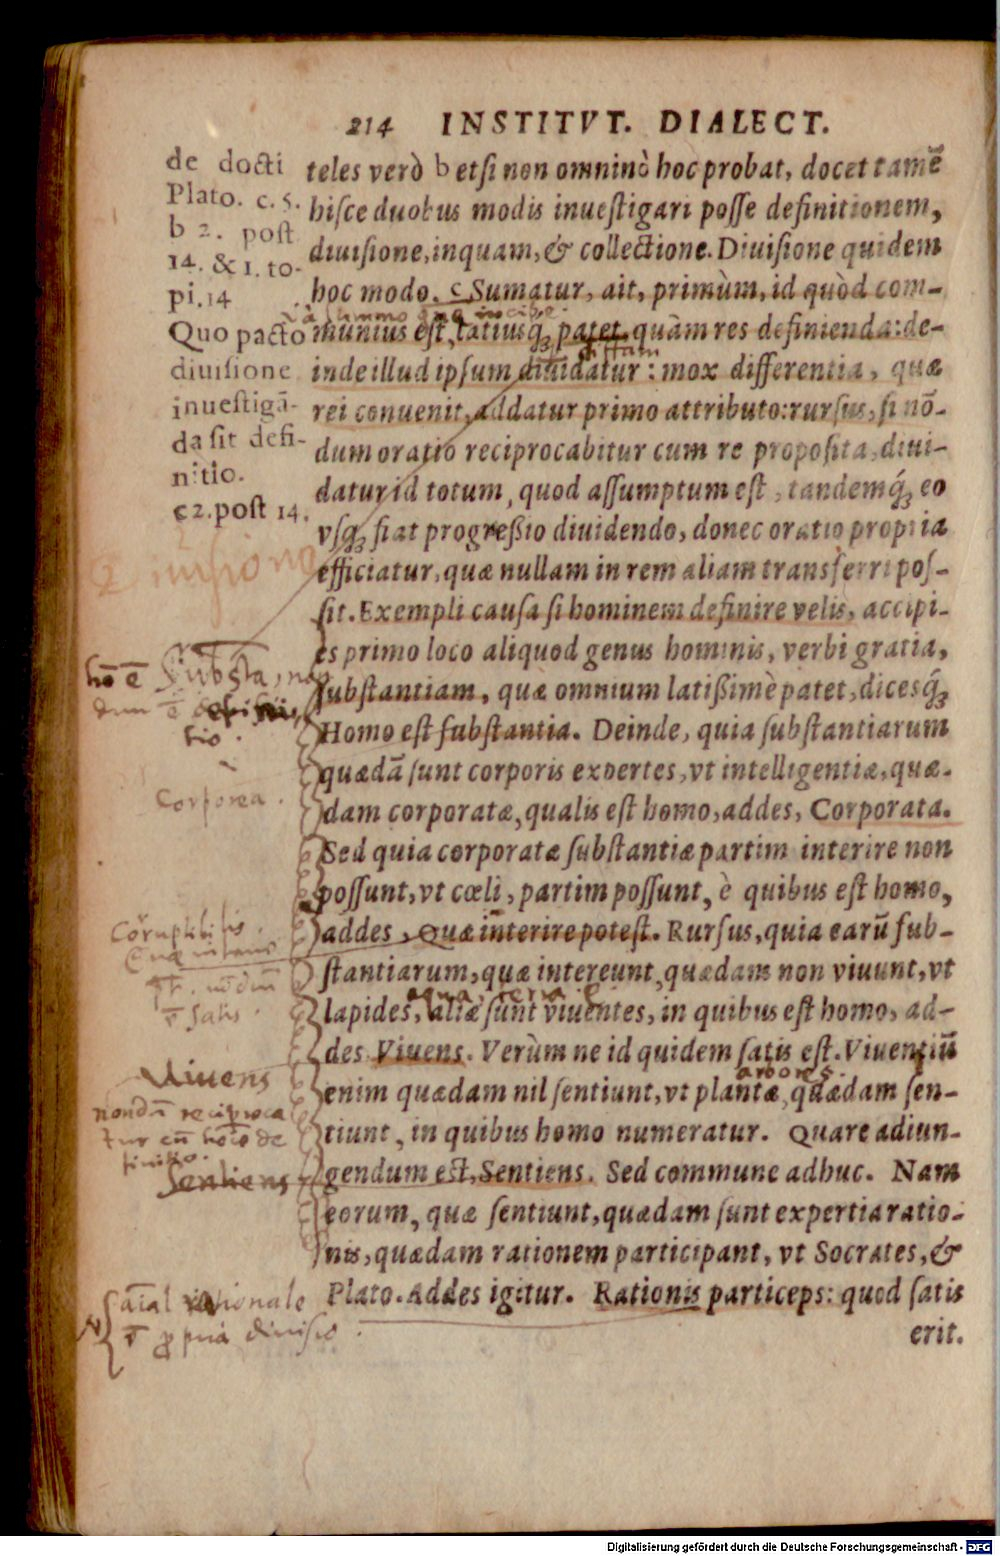 214 INSTITVT. DIALECT.
de docti
Plato. c. 5.
b 2. post
14. & 1. to-
pi. 14
Quo pacto
diuisione
inuestigā-
da sit defi-
nitio.
c 2. post 14.
teles verò b etsi non omninò hoc probat, docet tamē
hisce duobus modis inuestigari posse definitionem,
diuisione, inquam, & collectione. Diuisione quidem
hoc modo. c Sumatur, ait, primùm, id quòd com-
munius est, latiusq́; patet, quàm res definienda: de-
inde illud ipsum diuidatur: mox differentia, quæ
rei conuenit, addatur primo attributo: rursus, si nō-
dum oratio reciprocabitur cum re proposita, diui-
datur id totum, quod assumptum est, tandemq́; eo
vsq; fiat progreßio diuidendo, donec oratio propria
efficiatur, quæ nullam in rem aliam transferri pos-
sit. Exempli causa si hominem definire velis, accipi-
es primo loco aliquod genus hominis, verbi gratia,
substantiam, quæ omnium latißimè patet, dicesq́;
Homo est substantia. Deinde, quia substantiarum
quædā sunt corporis expertes, vt intelligentiæ, quæ-
dam corporatæ, qualis est homo, addes, Corporata.
Sed quia corporatæ substantiæ partim interire non
possunt, vt cœli, partim possunt, è quibus est homo,
addes, Quæ interire potest. Rursus, quia earū sub-
stantiarum, quæ intereunt, quædam non viuunt, vt
lapides, aliæ sunt viuentes, in quibus est homo, ad-
des Viuens. Verùm ne id quidem satis est. Viuentiū
enim quædam nil sentiunt, vt plantæ, quædam sen-
tiunt, in quibus homo numeratur. Quare adiun-
gendum est, Sentiens. Sed commune adhuc. Nam
eorum, quæ sentiunt, quædam sunt expertia ratio-
nis, quædam rationem participant, vt Socrates, &
Plato. Addes igitur. Rationis particeps: quod satis
erit.
Diuisione
hō ē Substa, non
Corporea.
Corruptibilis
ē satis.
aqua, terra
Viuens
arbores.
nondū reciproca
tur cū hoīs de
finitio.
Sentiens
aīal rationale
diuisio.
Digitalisierung gefördert durch die Deutsche Forschungsgemeinschaft - DFG